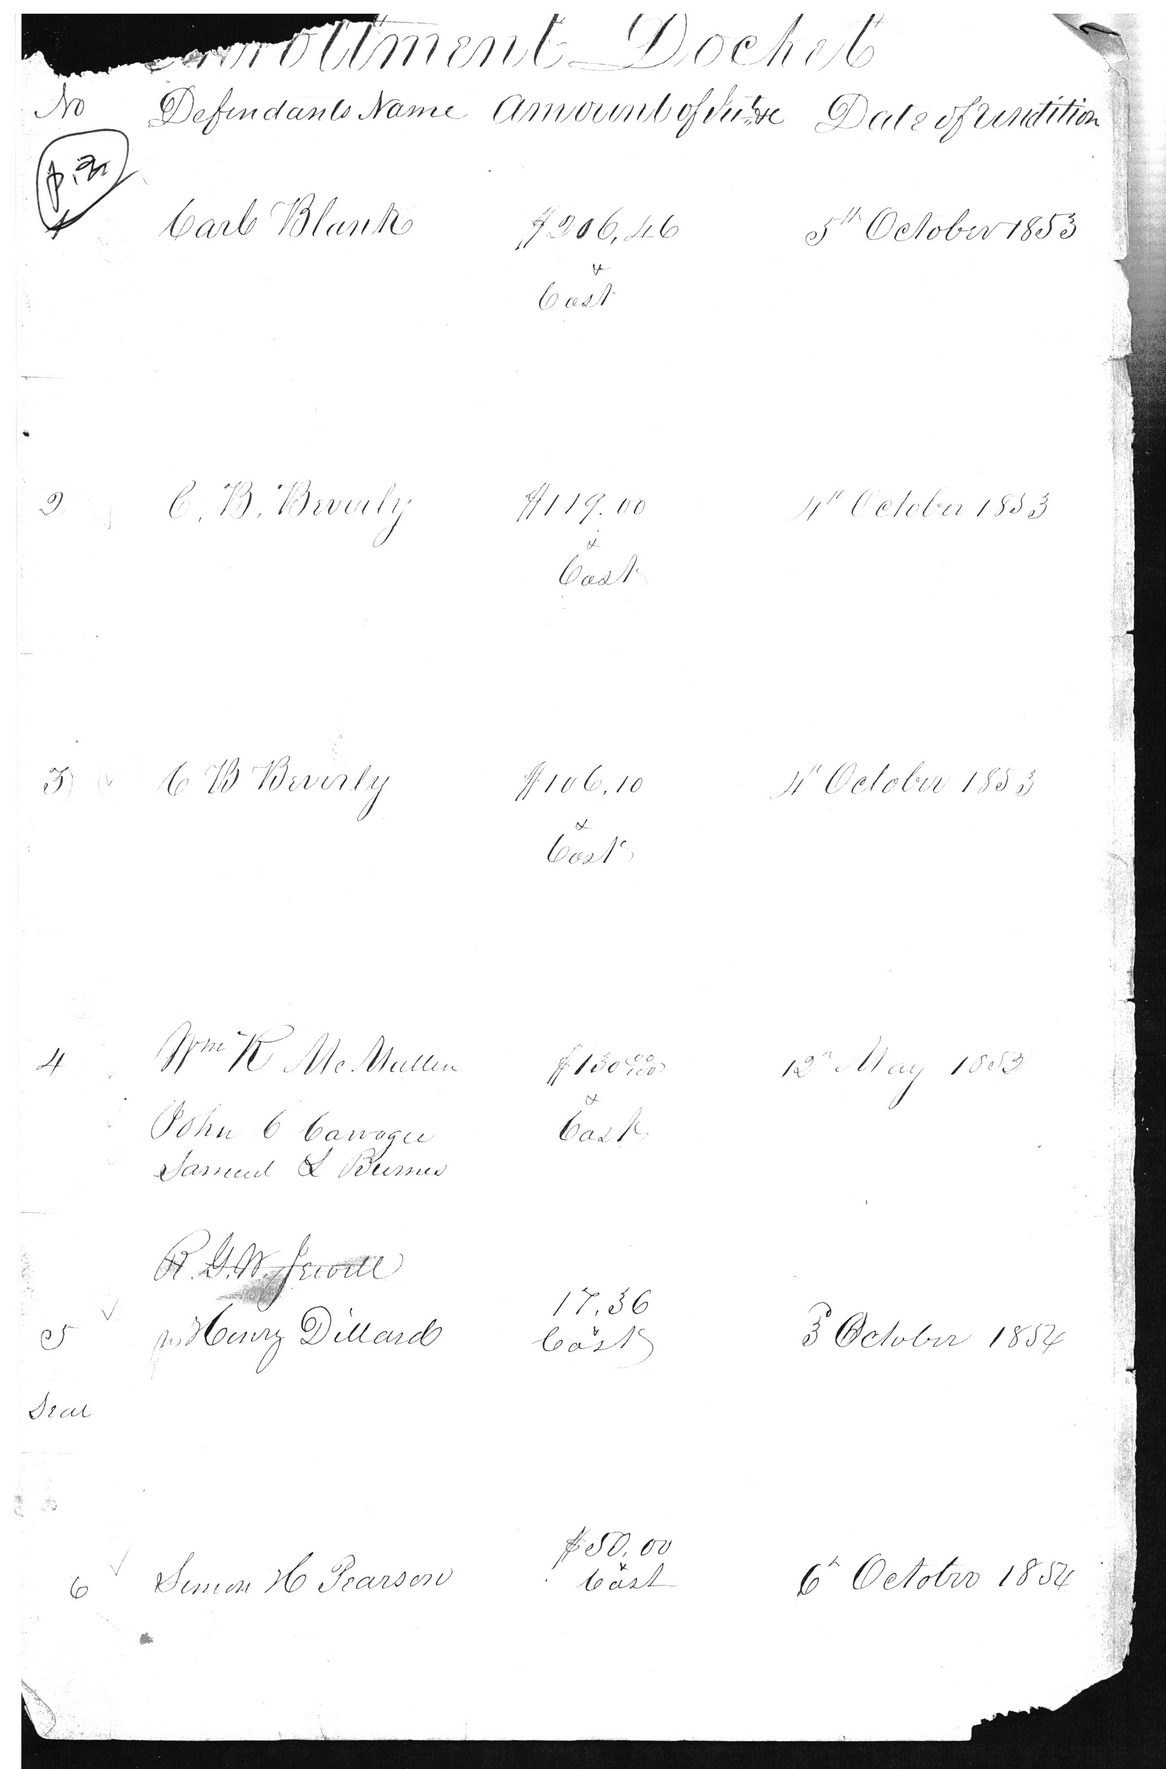 Enrollment Docket
No Defendants Name Amount of Date of rendition
p. 2
1 Carl Blank $206.46 5th October 1853
&
Cost
2 C. B. Beverly $119.00 4th October 1853
&
Cost
3 C B Beverly $106.10 4th October 1853
&
Cost
4 Wm K McMullen $130 00/100 12th May 1853
&
John C Cost
Samuel L
R. G. W. Jewell
17.36
5 Henry Dillard & Cost 3d October 1854
$50.00
6 Simon H Pearson & Cost 6th October 1854